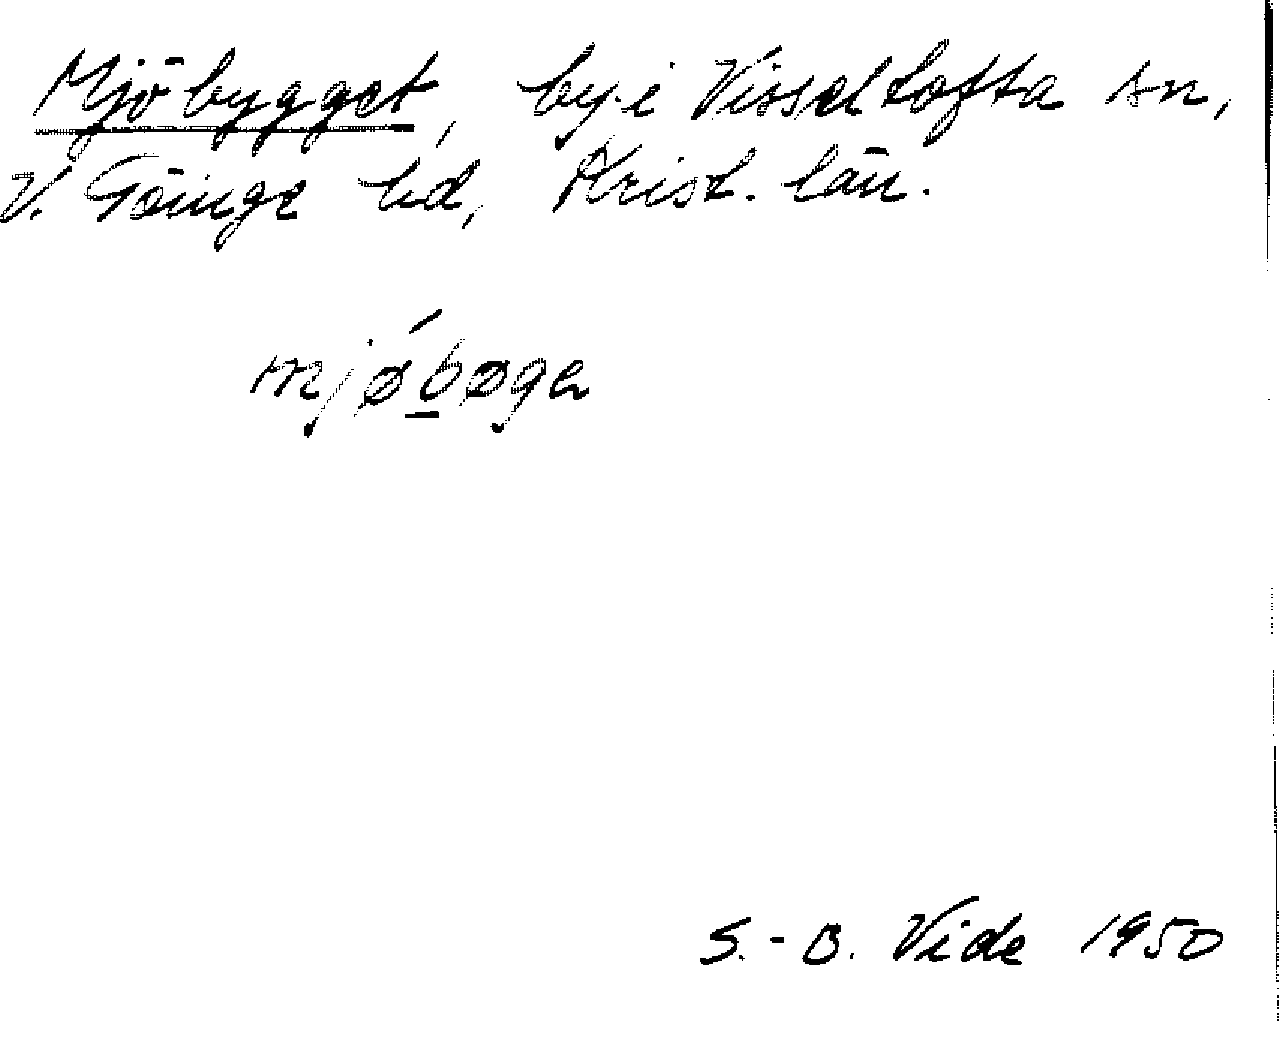 Mjöbygget, by i Visseltofta sn,
V. Göinge hd, Krist. län.
mjǿb̲øgə
S.-B. Vide 1950